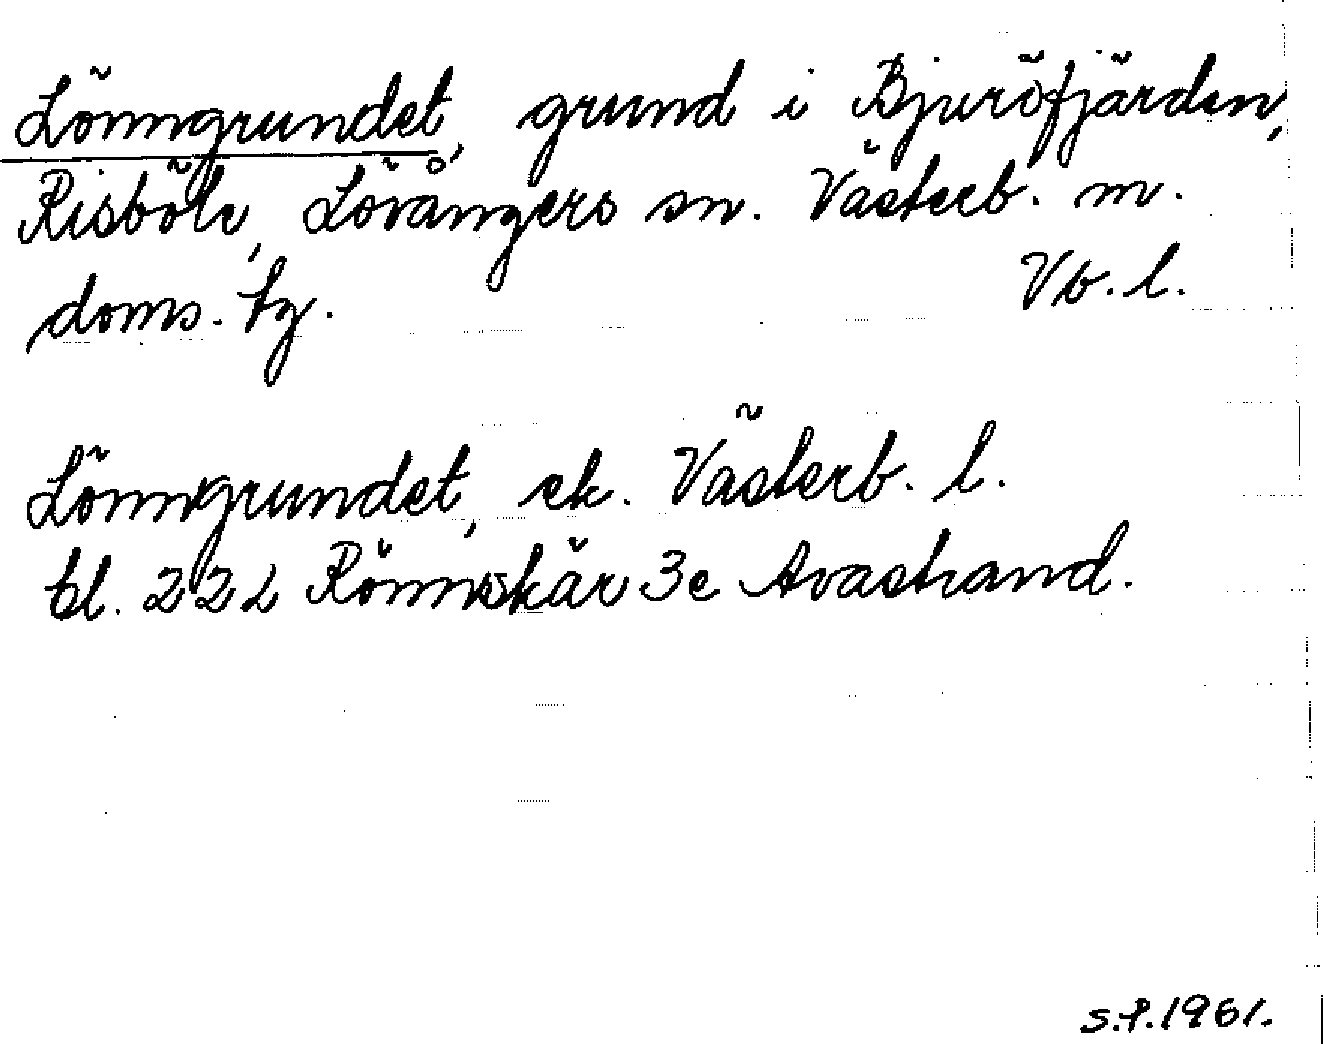 Lönngrundet, grund i Bjuröfjärden,
Risböle, Lövångers sn. Västerb. m.
doms. tg. Vb. l.
Lönngrundet, ek. Västerb. l.
bl. 222 Rönnskär 3e Avastrand.
S.f. 1961.